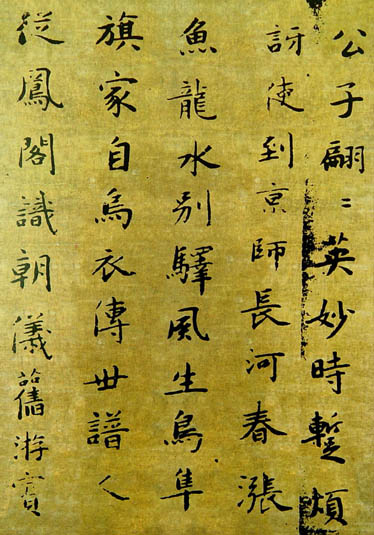 公子翩〻英妙時暫煩
訝使到京師長河春漲
魚龍水別驛風生鳥隼
旗家自烏衣傳世譜人
從鳳閣識朝儀舊游賓